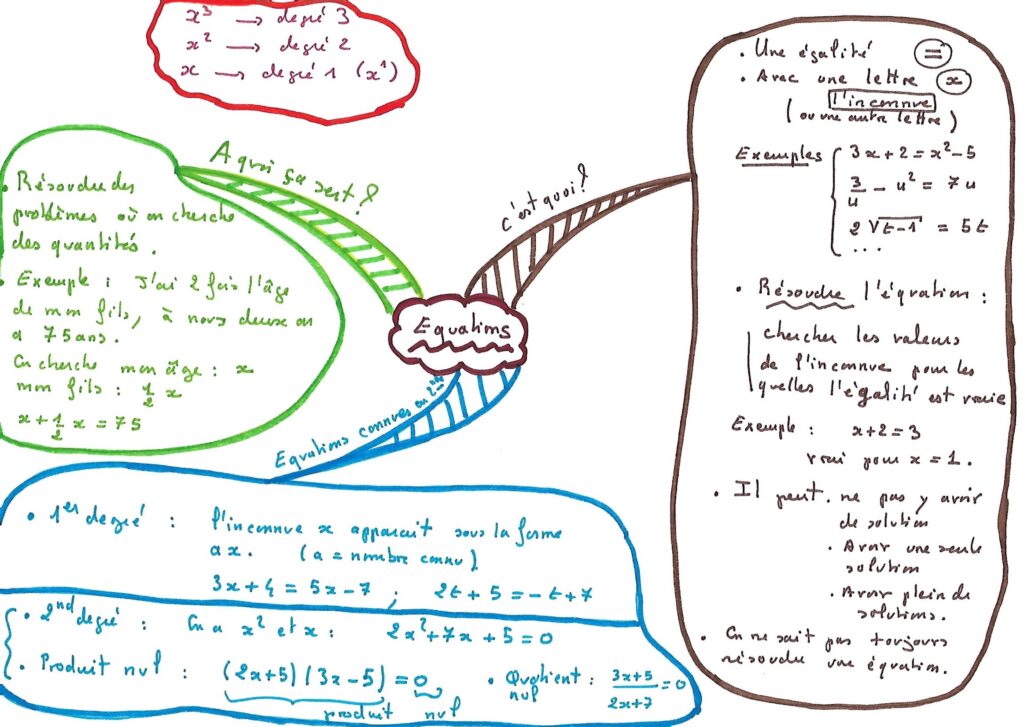 x³ → degré 3
x² → degré 2
x → degré 1 (x¹)
A quoi ça sert ?
• Résoudre des
problèmes où on cherche
des quantités.
• Exemple : J'ai 2 fois l'âge
de mon fils, à nous deux on
a 75 ans.
On cherche mon âge : x
mon fils : 1/2 x
x + 1/2 x = 75
Equations
c'est quoi ?
• Une égalité =
• Avec une lettre x
l'inconnue
(ou une autre lettre)
Exemples { 3x + 2 = x² - 5
3/u - u² = 7u
2√(t-1) = 5t
...
• Résoudre l'équation :
chercher les valeurs
de l'inconnue pour les
quelles l'égalité est vraie
Exemple : x+2 = 3
vrai pour x = 1.
• Il peut. ne pas y avoir
de solution
• Avoir une seule
solution
• Avoir plein de
solutions.
• On ne sait pas toujours
résoudre une équation.
Equations connues en 2nde
• 1er degré : l'inconnue x apparait sous la forme
ax. (a = nombre connu)
3x + 4 = 5x - 7 ; 2t + 5 = -t + 7
• 2nd degré : On a x² et x : 2x² + 7x + 5 = 0
• Produit nul : (2x+5)(3x-5) = 0 • Quotient : (3x+5)/(2x+7) = 0
nul
produit nul